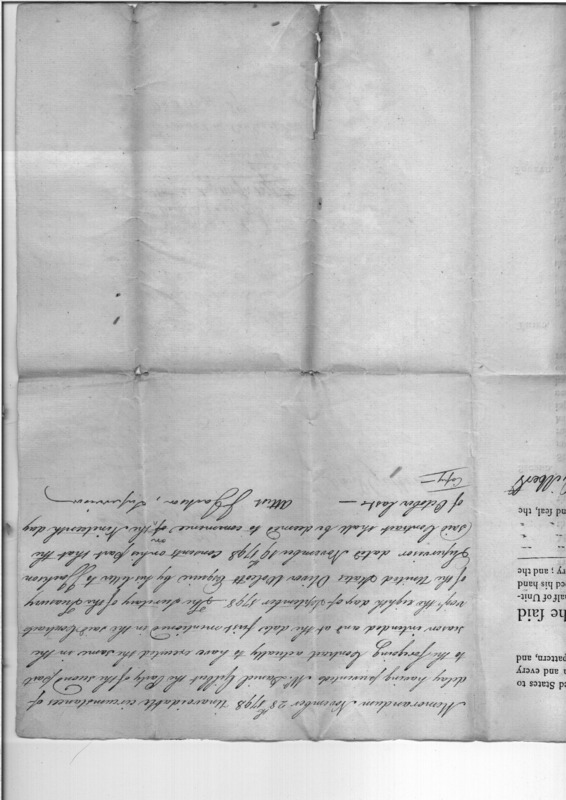 Memorandum. November 28th 1798 Unavoidable circumstances of
delay having prevented Mr. Daniel Gilbert the Party of the second part
to the foregoing Contract actually to have executed the same in the
season intended and at the date first mentioned in the said Contract
vizt. the eighth day of September 1798 — The Secretary of the Treasury
of the United States Oliver Wolcott Esquire by his letter to J Jackson
Supervisor dated November 19th 1798 consents on his part that the
said Contract shall be deemed to commence of the Nineteenth day
of October last —
Attest J Jackson, Supervisor
Copy
ed States to
and every
pattern, and
he said
half of Unit-
ed his hand
ry; and the
and seal, the
Gilbert